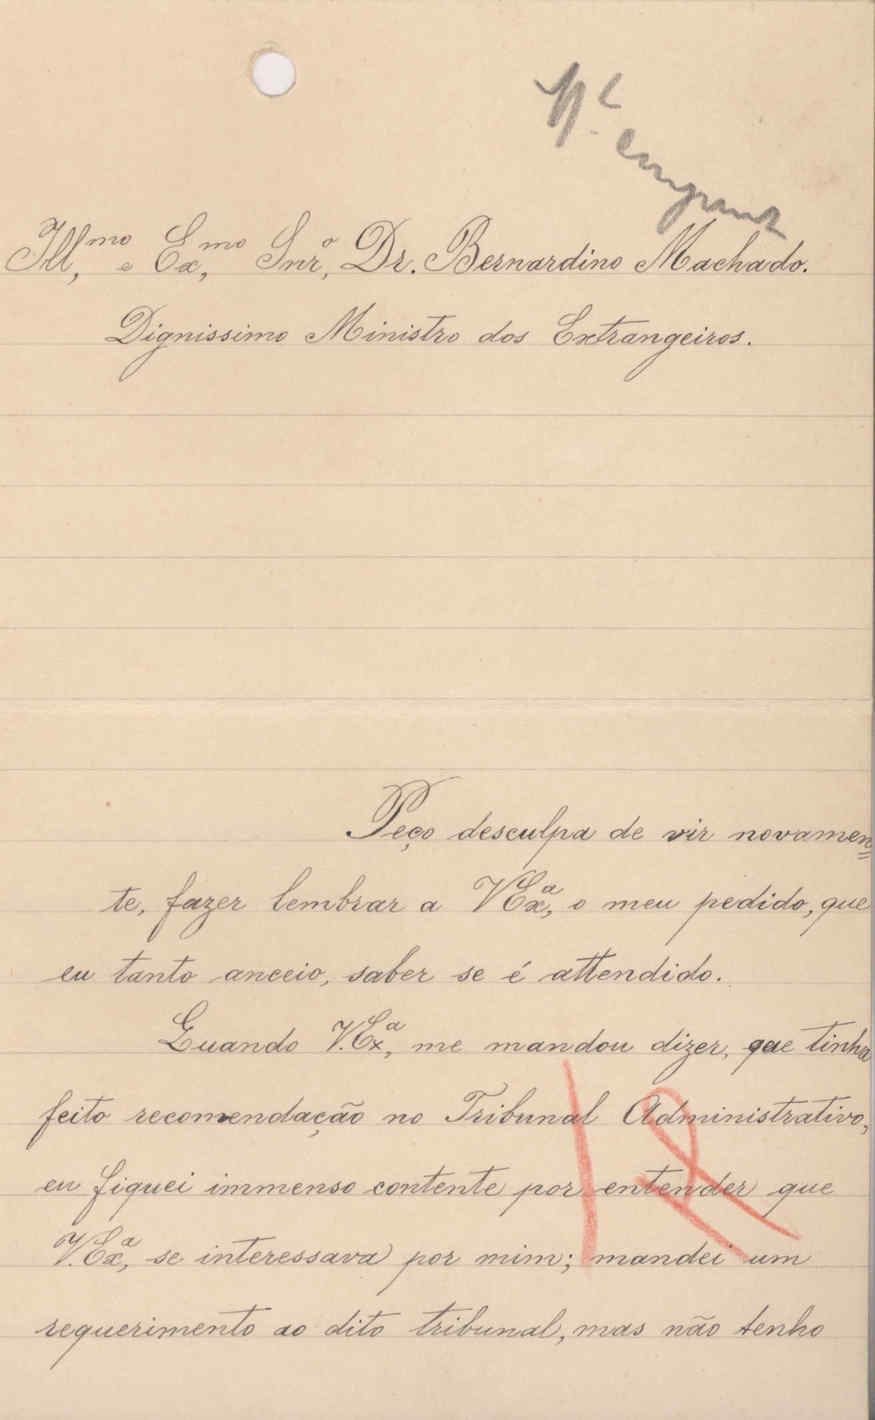 Ill,mo e Ex,mo Snr,o Dr. Bernardino Machado.
Dignissimo Ministro dos Extrangeiros.
Peço desculpa de vir novamen=
te, fazer lembrar a V Exa, o meu pedido, que
eu tanto anceio, saber se é attendido.
Quando V. Exa, me mandou dizer, que tinha
feito recomendação no Tribunal Administrativo,
eu fiquei immenso contente por entender que
V. Exa, se interessava por mim; mandei um
requerimento ao dito tribunal, mas não tenho